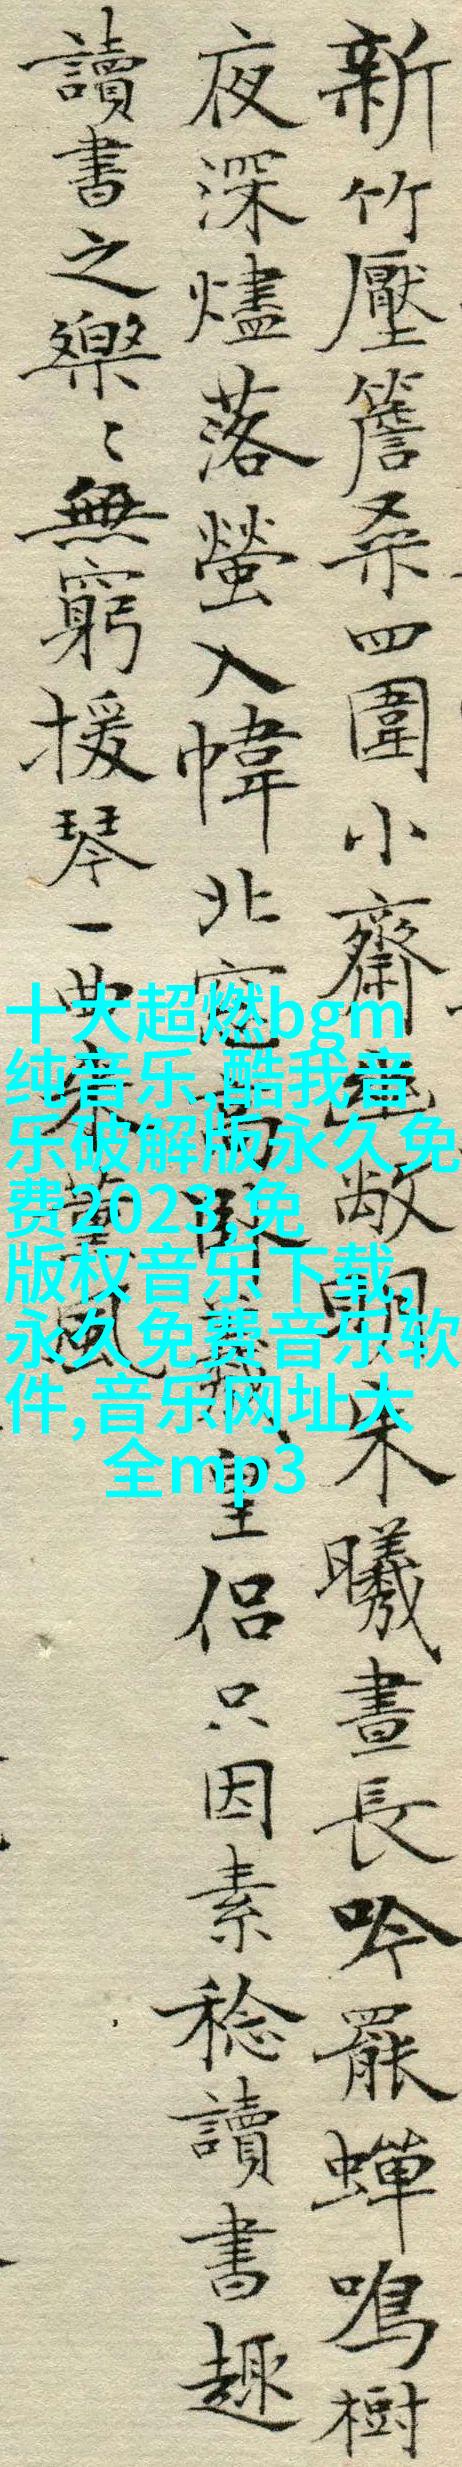 新竹壓簷桑四圍小齋幽敞明朱曦晝長吟罷蟬鳴樹
夜深燼落螢入幃北窗高臥羲皇侶只因素稔讀書趣
讀書之樂〻無窮援琴一曲來薰風
十大超燃bgm
纯音乐,酷我音
乐破解版永久免
费2023,免
版权音乐下载,
永久免费音乐软
件,音乐网址大
全mp3